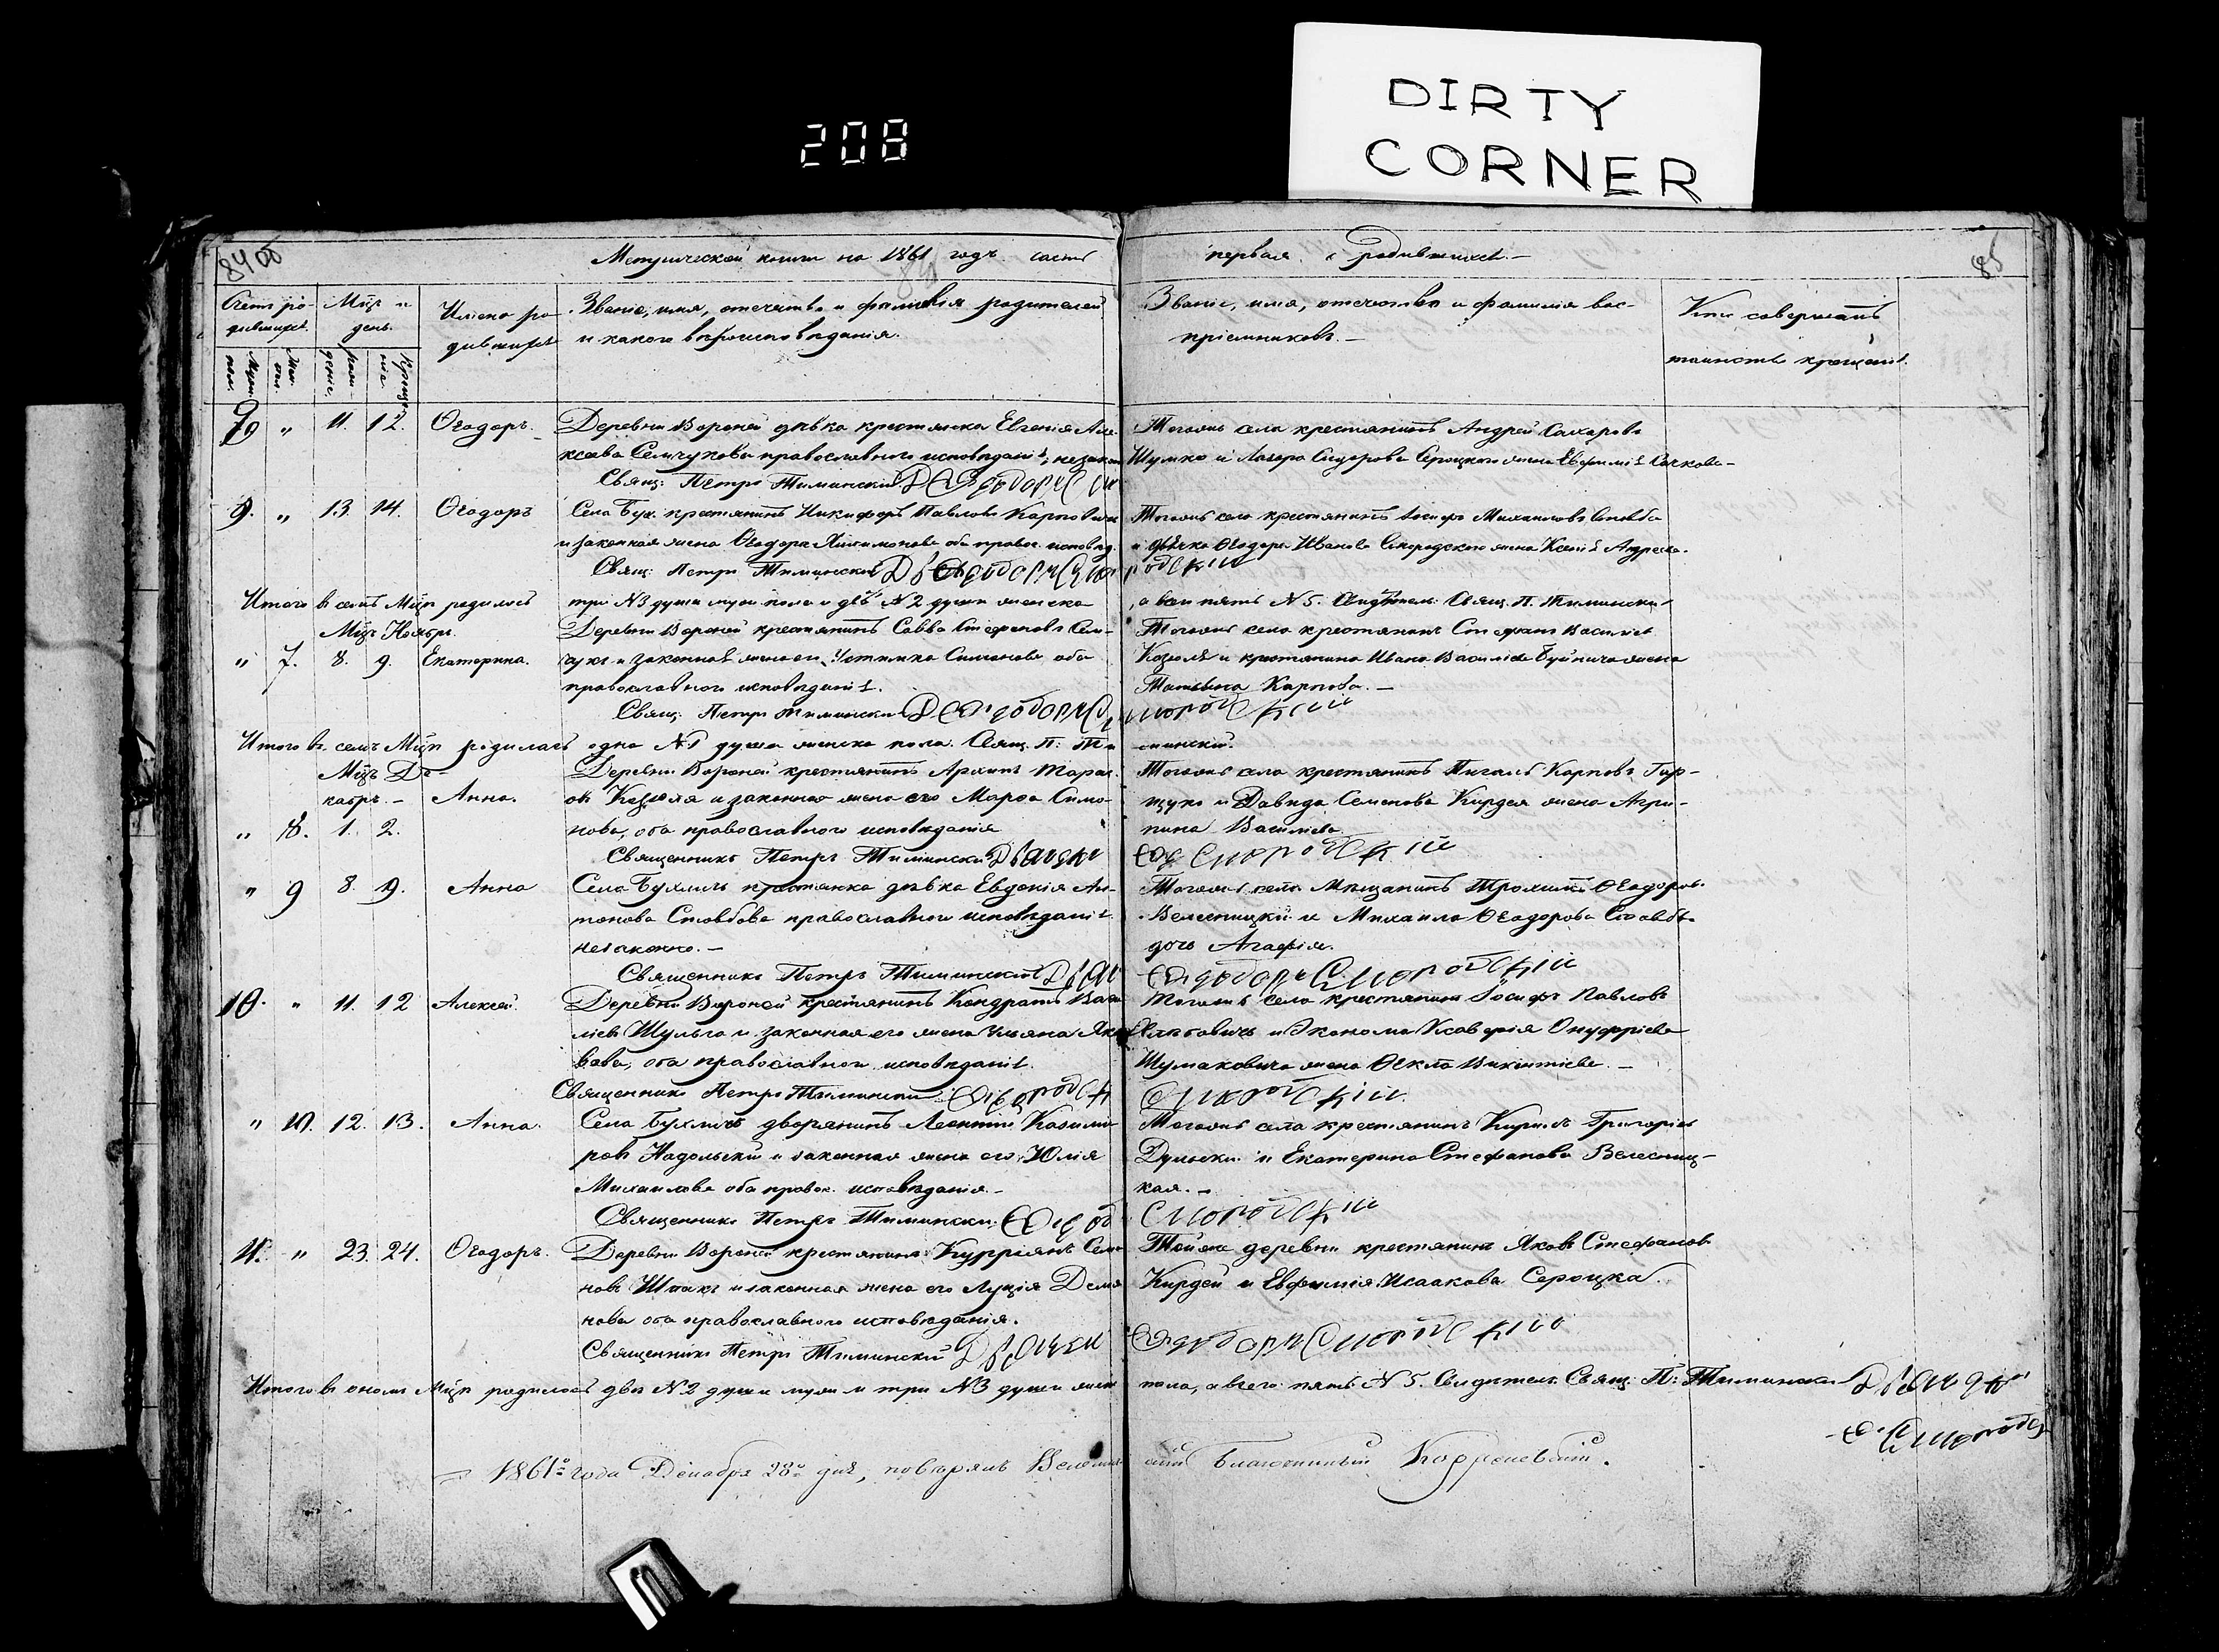 208
DIRTY
CORNER
84об
85
Метрической книги на 1861 годъ часть первая о родившихся.
Счетъ родившихся.
Мцъ и день.
Имена родившихся
Званіе, имя, отечество и фамилія родителей
и какого вѣроисповѣданія.
Званіе, имя, отечество и фамилія вос-
пріемниковъ. —
Кто совершалъ
таинство крещенія.
11. 12. Ѳеодоръ. Деревни Вороней дѣвка крестянка Евгенія Але-
ксѣева Семчукова православного исповѣданія, незакон
Свящ: Петръ Тиминскій
Тогожъ села крестянинъ Андрей Сахаровъ
Шумко и Лазаря Сидорова Сероцкого жена Евфимія
9. „ 13. 14. Ѳеодоръ Села Бух. крестянинъ Никифоръ Павловъ Карпович
и законная жена Ѳеодора оба правос. исповѣд.
Свящ: Петръ Тиминскій
Тогожъ села крестянинъ Іосифъ Михаиловъ
и дьячка Ѳеодора Иванова Смородского жена Ксенія Андреева.
Итого въ семъ Мцѣ родилось три №3 души муж. пола и двѣ №2 души женска
, а всѣхъ пять №5. Свящ. П. Тиминскій
Мцъ Ноябрь.
„ 7. 8. 9. Екатерина. Деревни Вороней крестянинъ Савва Стефановъ Сем-
чукъ и законная жена его Устинка Симонова оба
православного исповѣданія.
Свящ: Петръ Тиминскій
Тогожъ села крестянинъ Стефанъ Василіев
Козюля и крестянина Ивана Василіева жена
Татьяна Карпова. —
Итого въ семъ Мцѣ родилась одна №1 душа женска пола. Свящ. П: Ти
минскій.
Мцъ Де-
кабрь. —
„ 8. 1. 2. Анна. Деревни Вороней крестянинъ Архипъ Тарас
овъ Козюля и законная жена его Марѳа Симо-
нова, оба православного исповѣданія
Священникъ Петръ Тиминскій
Тогожъ села крестянинъ Карповъ Гор-
щукъ и Давида Семенова Кирдея жена Агри-
пина Василіева
Смородскій
„ 9 8. 9. Анна Села Бухличъ крестянка дѣвка Евдокія Ан-
тонова Стовбова православного исповѣданія
незаконно. —
Священникъ Петръ Тиминскій
Тогожъ села Мѣщанинъ Трохимъ Ѳеодоров.
Велесницкій и Михаила Ѳеодорова
дочь Агафія.
Ѳеодоръ Смородскій
10. „ 11. 12 Алексей. Деревни Вороней крестянинъ Кондратъ Васи
ліевъ Шульга и законная его жена Ульяна Яко
вова, оба православного исповѣданія.
Священникъ Петръ Тиминскій
Тогожъ села крестянинъ Іосифъ Павловъ
и Эконома Ксаверія Онуфріева
Шумаковича жена Ѳекла Викентіева. —
Смородскій
„ 10. 12. 13. Анна. Села Бухличъ дворянинъ Леонтій Казими
ровъ Надольскій и законная жена его Юлія
Михаилова оба правос. исповѣданія. —
Священникъ Петръ Тиминскій.
Тогожъ села крестянинъ Кирилъ Григоріев
Дульскій и Екатерина Стефанова Велесниц-
кая. —
Смородскій
11. „ 23. 24. Ѳеодоръ. Деревни Вороней крестянинъ Купріянъ Семе
новъ Шпакъ и законная жена его Луція Демя
нова оба православного исповѣданія.
Священникъ Петръ Тиминскій
Тойже деревни крестянинъ Яковъ Стефанов
Кирдей и Евфимія Исаакова Сероцка.
Ѳеодоръ Смородскій
Итого въ ономъ Мцѣ родилось двѣ №2 души муж. и три №3 души жен
пола, а всего пять №5. Свящ: П: Тиминскій
1861го года Декабря 28го дня, повѣрялъ
Благочинный